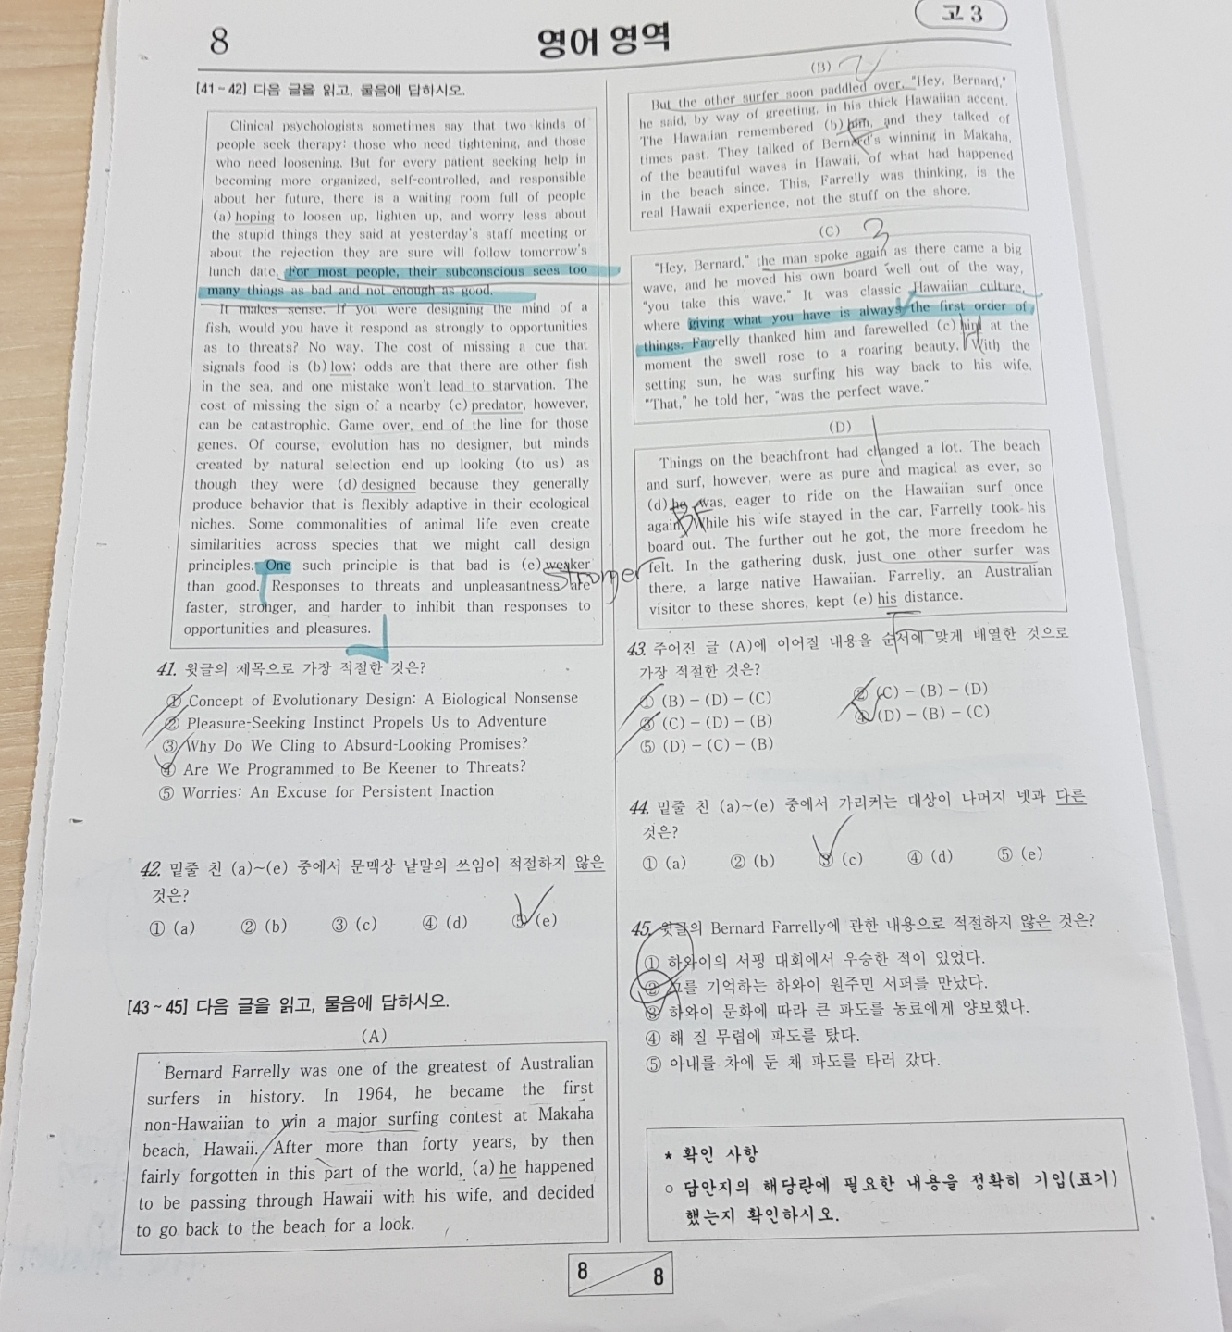 8
영어 영역
고 3
[41~42] 다음 글을 읽고, 물음에 답하시오.
Clinical psychologists sometimes say that two kinds of
people seek therapy: those who need tightening, and those
who need loosening. But for every patient seeking help in
becoming more organized, self-controlled, and responsible
about her future, there is a waiting room full of people
(a) hoping to loosen up, lighten up, and worry less about
the stupid things they said at yesterday's staff meeting or
about the rejection they are sure will follow tomorrow's
lunch date. For most people, their subconscious sees too
many things as bad and not enough as good.
It makes sense. If you were designing the mind of a
fish, would you have it respond as strongly to opportunities
as to threats? No way. The cost of missing a cue that
signals food is (b) low; odds are that there are other fish
in the sea, and one mistake won't lead to starvation. The
cost of missing the sign of a nearby (c) predator, however,
can be catastrophic. Game over, end of the line for those
genes. Of course, evolution has no designer, but minds
created by natural selection end up looking (to us) as
though they were (d) designed because they generally
produce behavior that is flexibly adaptive in their ecological
niches. Some commonalities of animal life even create
similarities across species that we might call design
principles. One such principle is that bad is (e) weaker
stronger
than good. Responses to threats and unpleasantness are
faster, stronger, and harder to inhibit than responses to
opportunities and pleasures.
41. 윗글의 제목으로 가장 적절한 것은?
① Concept of Evolutionary Design: A Biological Nonsense
② Pleasure-Seeking Instinct Propels Us to Adventure
③ Why Do We Cling to Absurd-Looking Promises?
④ Are We Programmed to Be Keener to Threats?
⑤ Worries: An Excuse for Persistent Inaction
42. 밑줄 친 (a)~(e) 중에서 문맥상 낱말의 쓰임이 적절하지 않은
것은?
① (a) ② (b) ③ (c) ④ (d) ⑤ (e)
[43~45] 다음 글을 읽고, 물음에 답하시오.
(A)
Bernard Farrelly was one of the greatest of Australian
surfers in history. In 1964, he became the first
non-Hawaiian to win a major surfing contest at Makaha
beach, Hawaii. After more than forty years, by then
fairly forgotten in this part of the world, (a) he happened
to be passing through Hawaii with his wife, and decided
to go back to the beach for a look.
(B) 2
But the other surfer soon paddled over. "Hey, Bernard,"
he said, by way of greeting, in his thick Hawaiian accent.
The Hawaiian remembered (b) him, and they talked of
times past. They talked of Bernard's winning in Makaha,
of the beautiful waves in Hawaii, of what had happened
in the beach since. This, Farrelly was thinking, is the
real Hawaii experience, not the stuff on the shore.
(C) 3
"Hey, Bernard," the man spoke again as there came a big
wave, and he moved his own board well out of the way,
"you take this wave." It was classic Hawaiian culture,
where giving what you have is always the first order of
things. Farrelly thanked him and farewelled (c) him at the
moment the swell rose to a roaring beauty. With the
setting sun, he was surfing his way back to his wife.
"That," he told her, "was the perfect wave."
(D) 1
Things on the beachfront had changed a lot. The beach
and surf, however, were as pure and magical as ever, so
(d) he was, eager to ride on the Hawaiian surf once
BF
again. While his wife stayed in the car, Farrelly took his
board out. The further out he got, the more freedom he
felt. In the gathering dusk, just one other surfer was
there, a large native Hawaiian. Farrelly, an Australian
visitor to these shores, kept (e) his distance.
43. 주어진 글 (A)에 이어질 내용을 순서에 맞게 배열한 것으로
가장 적절한 것은?
① (B) - (D) - (C) ② (C) - (B) - (D)
③ (C) - (D) - (B) ④ (D) - (B) - (C)
⑤ (D) - (C) - (B)
44. 밑줄 친 (a)~(e) 중에서 가리키는 대상이 나머지 넷과 다른
것은?
① (a) ② (b) ③ (c) ④ (d) ⑤ (e)
45. 윗글의 Bernard Farrelly에 관한 내용으로 적절하지 않은 것은?
① 하와이의 서핑 대회에서 우승한 적이 있었다.
② 그를 기억하는 하와이 원주민 서퍼를 만났다.
③ 하와이 문화에 따라 큰 파도를 동료에게 양보했다.
④ 해 질 무렵에 파도를 탔다.
⑤ 아내를 차에 둔 채 파도를 타러 갔다.
* 확인 사항
○ 답안지의 해당란에 필요한 내용을 정확히 기입(표기)
했는지 확인하시오.
8
8